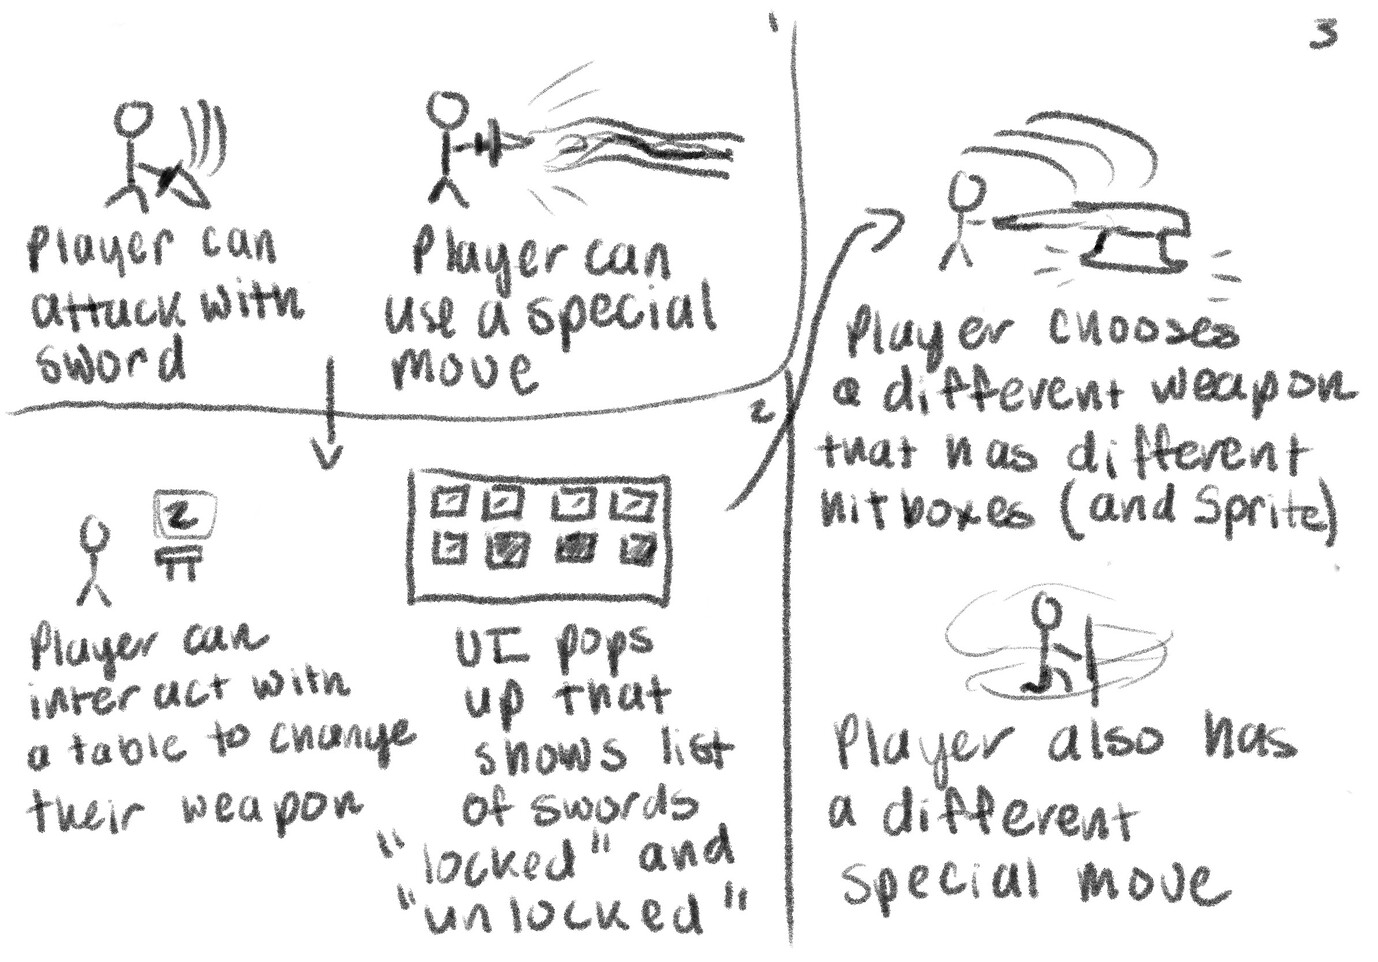 1
Player can
attack with
sword
Player can
use a special
move
2
2
Player can
interact with
a table to change
their weapon
UI pops
up that
shows list
of swords
"locked" and
"unlocked"
3
Player chooses
a different weapon
that has different
hitboxes (and Sprite)
Player also has
a different
special move